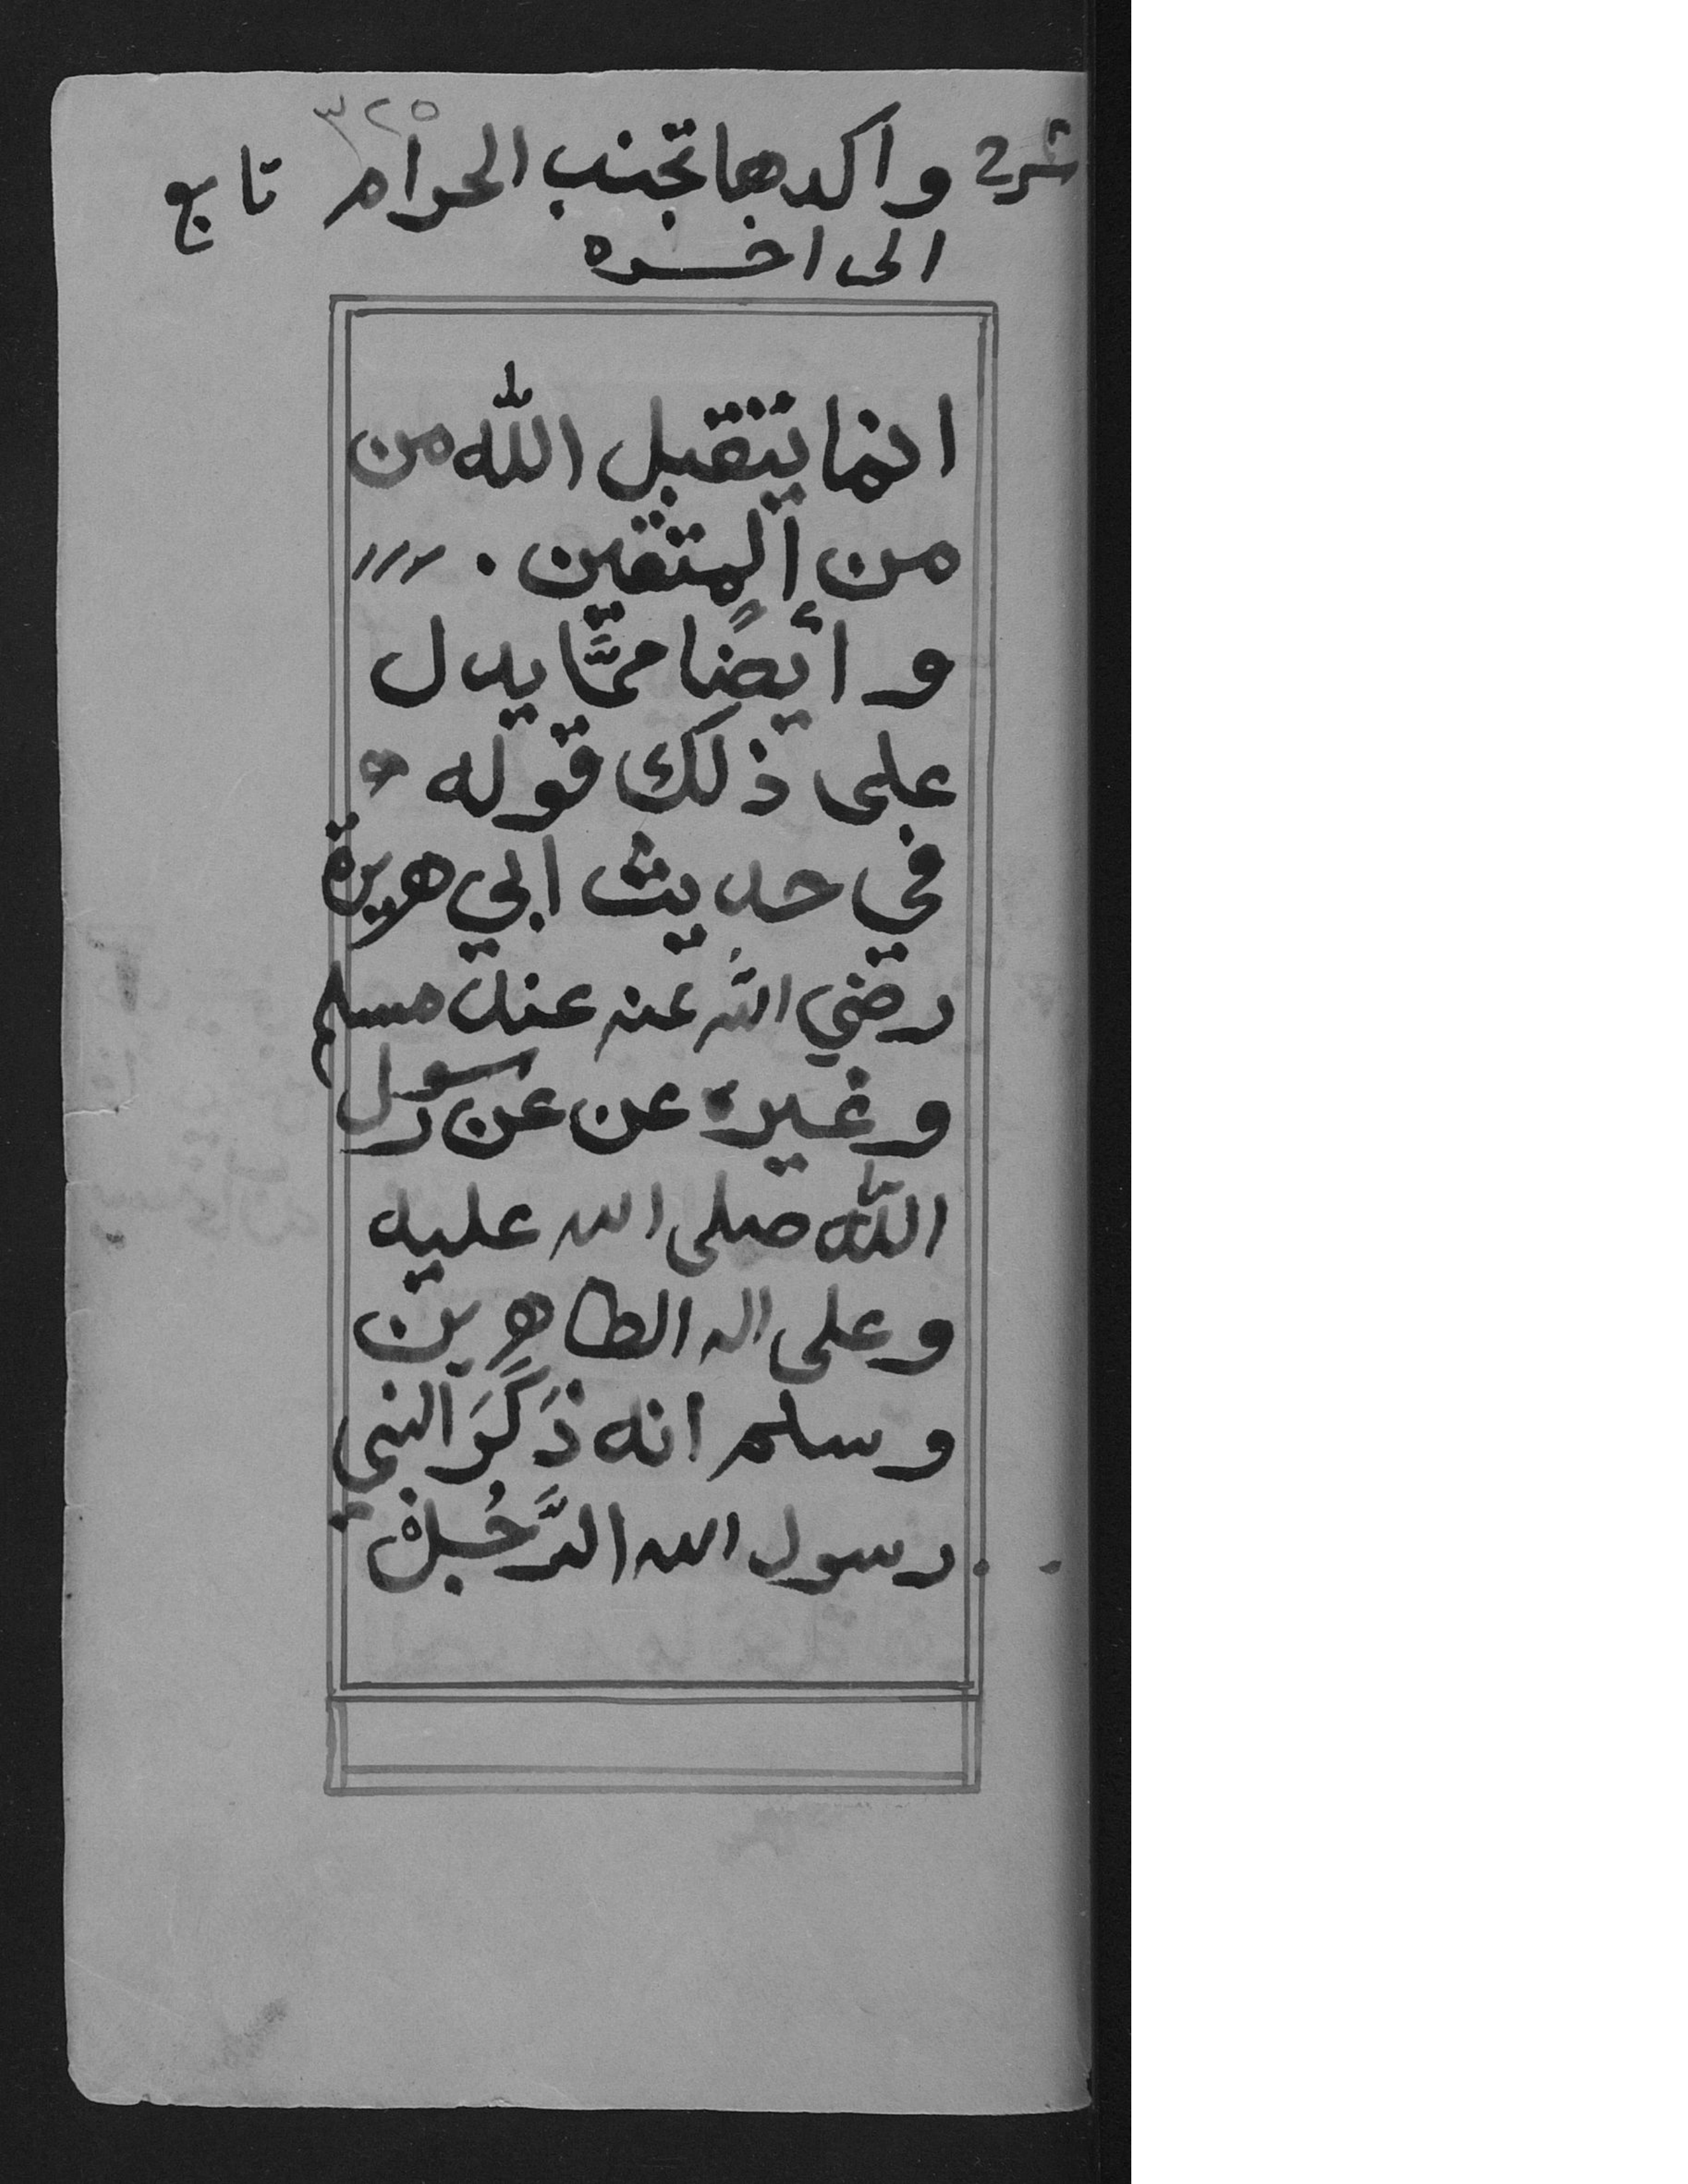 ٣٢٥
شرح واكدها تجنب الحرام تابع
الى اخره
انما يتقبل الله من
من المتقين .
و أيضًا ممَّا يدل
على ذلك قوله
في حديث ابي هريرة
رضي الله عنه عند مسلم
وغيره عن عن رسول
الله صلى الله عليه
وعلى اله الطاهرين
وسلم انه ذَكَرَ النبي
رسول الله الرَّجُل